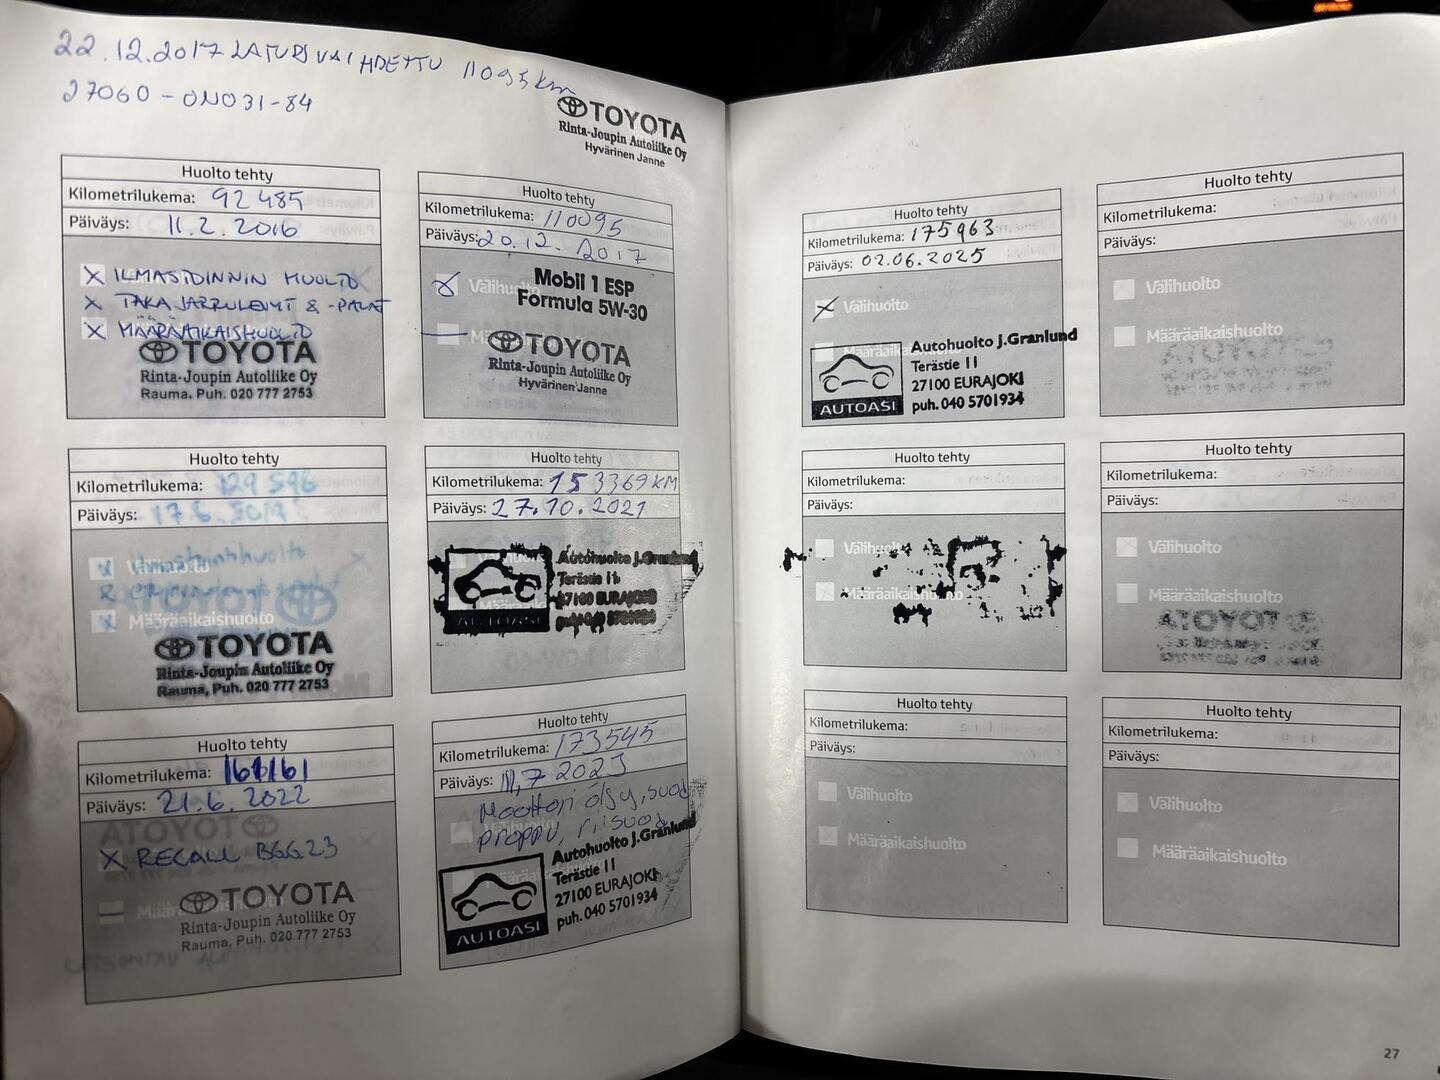 22.12.2017 LATURI VAIHDETTU 11095 km
27060-0N031-84
TOYOTA
Rinta-Joupin Autoliike Oy
Hyvärinen Janne
Huolto tehty
Kilometrilukema: 92 485
Päiväys: 11.2.2016
X ILMASTOINNIN HUOLTO
X TAKAJARRULEVYT & -PALAT
X MÄÄRÄAIKAISHUOLTO
TOYOTA
Rinta-Joupin Autoliike Oy
Rauma. Puh. 020 777 2753
Huolto tehty
Kilometrilukema: 110095
Päiväys: 20.12.2017
Välihuolto
Mobil 1 ESP
Formula 5W-30
TOYOTA
Rinta-Joupin Autoliike Oy
Hyvärinen Janne
Huolto tehty
Kilometrilukema: 129 596
Päiväys: 17.6.2019
Määräaikaishuolto
TOYOTA
Rinta-Joupin Autoliike Oy
Rauma, Puh. 020 777 2753
Huolto tehty
Kilometrilukema: 153369 KM
Päiväys: 27.10.2021
Autohuolto J.Granlund
Terästie 11
27100 EURAJOKI
AUTOASI
Huolto tehty
Kilometrilukema: 161161
Päiväys: 21.6.2022
X RECALL BGG23
TOYOTA
Rinta-Joupin Autoliike Oy
Rauma, Puh. 020 777 2753
Huolto tehty
Kilometrilukema: 173545
Päiväys: 11,7 2023
Moottori öljy, suod
proppu, riisuod
Autohuolto J.Granlund
Terästie 11
27100 EURAJOKI
puh. 040 5701934
AUTOASI
Huolto tehty
Kilometrilukema: 175963
Päiväys: 02.06.2025
X Välihuolto
Määräaikaishuolto
Autohuolto J.Granlund
Terästie 11
27100 EURAJOKI
puh. 040 5701934
AUTOASI
Huolto tehty
Kilometrilukema:
Päiväys:
Välihuolto
Määräaikaishuolto
Huolto tehty
Kilometrilukema:
Päiväys:
Välihuolto
Määräaikaishuolto
Huolto tehty
Kilometrilukema:
Päiväys:
Välihuolto
Määräaikaishuolto
Huolto tehty
Kilometrilukema:
Päiväys:
Välihuolto
Määräaikaishuolto
Huolto tehty
Kilometrilukema:
Päiväys:
Välihuolto
Määräaikaishuolto
27